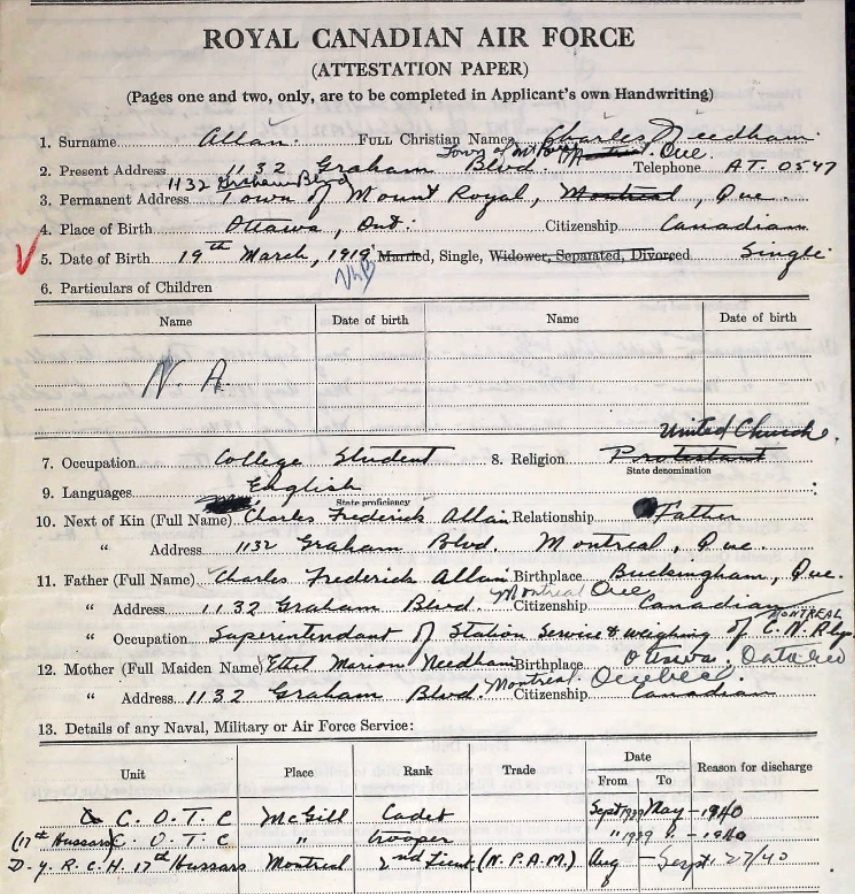 ROYAL CANADIAN AIR FORCE
(ATTESTATION PAPER)
(Pages one and two, only, are to be completed in Applicant's own Handwriting)
1. Surname Allan. FULL Christian Names Charles Needham.
Town of Mt Royal Montreal. Que.
2. Present Address 1132 Graham Blvd. Telephone AT. 0547
1132 Graham Blvd
3. Permanent Address Town of Mount Royal, Montreal, Que.
4. Place of Birth Ottawa, Ont. Citizenship Canadian
5. Date of Birth 19th March, 1919 Married, Single, Widower, Separated, Divorced Single
6. Particulars of Children
Name Date of birth Name Date of birth
N. A.
United Church.
7. Occupation College Student 8. Religion Protestant
State denomination
9. Languages English
State proficiency
10. Next of Kin (Full Name) Charles Frederick Allan Relationship Father
" Address 1132 Graham Blvd. Montreal, Que.
11. Father (Full Name) Charles Frederick Allan Birthplace Buckingham, Que.
" Address 1132 Graham Blvd. Montreal Que Citizenship Canadian
MONTREAL
" Occupation Superintendant of Station Service & weighing of C.N. Rly.
12. Mother (Full Maiden Name) Ethel Marion Needham Birthplace Ottawa, Ontario
" Address 1132 Graham Blvd. Montreal. Quebec. Citizenship Canadian
13. Details of any Naval, Military or Air Force Service:
Unit Place Rank Trade Date From To Reason for discharge
C. O. T. C McGill Cadet Sept 1939 May - 1940
(17th Hussars) C. O. T. C " trooper " 1939 " - 1940
D. Y. R. C. H. 17th Hussars Montreal 2nd Lieut (N.P.A.M.) Aug - Sept 27/40